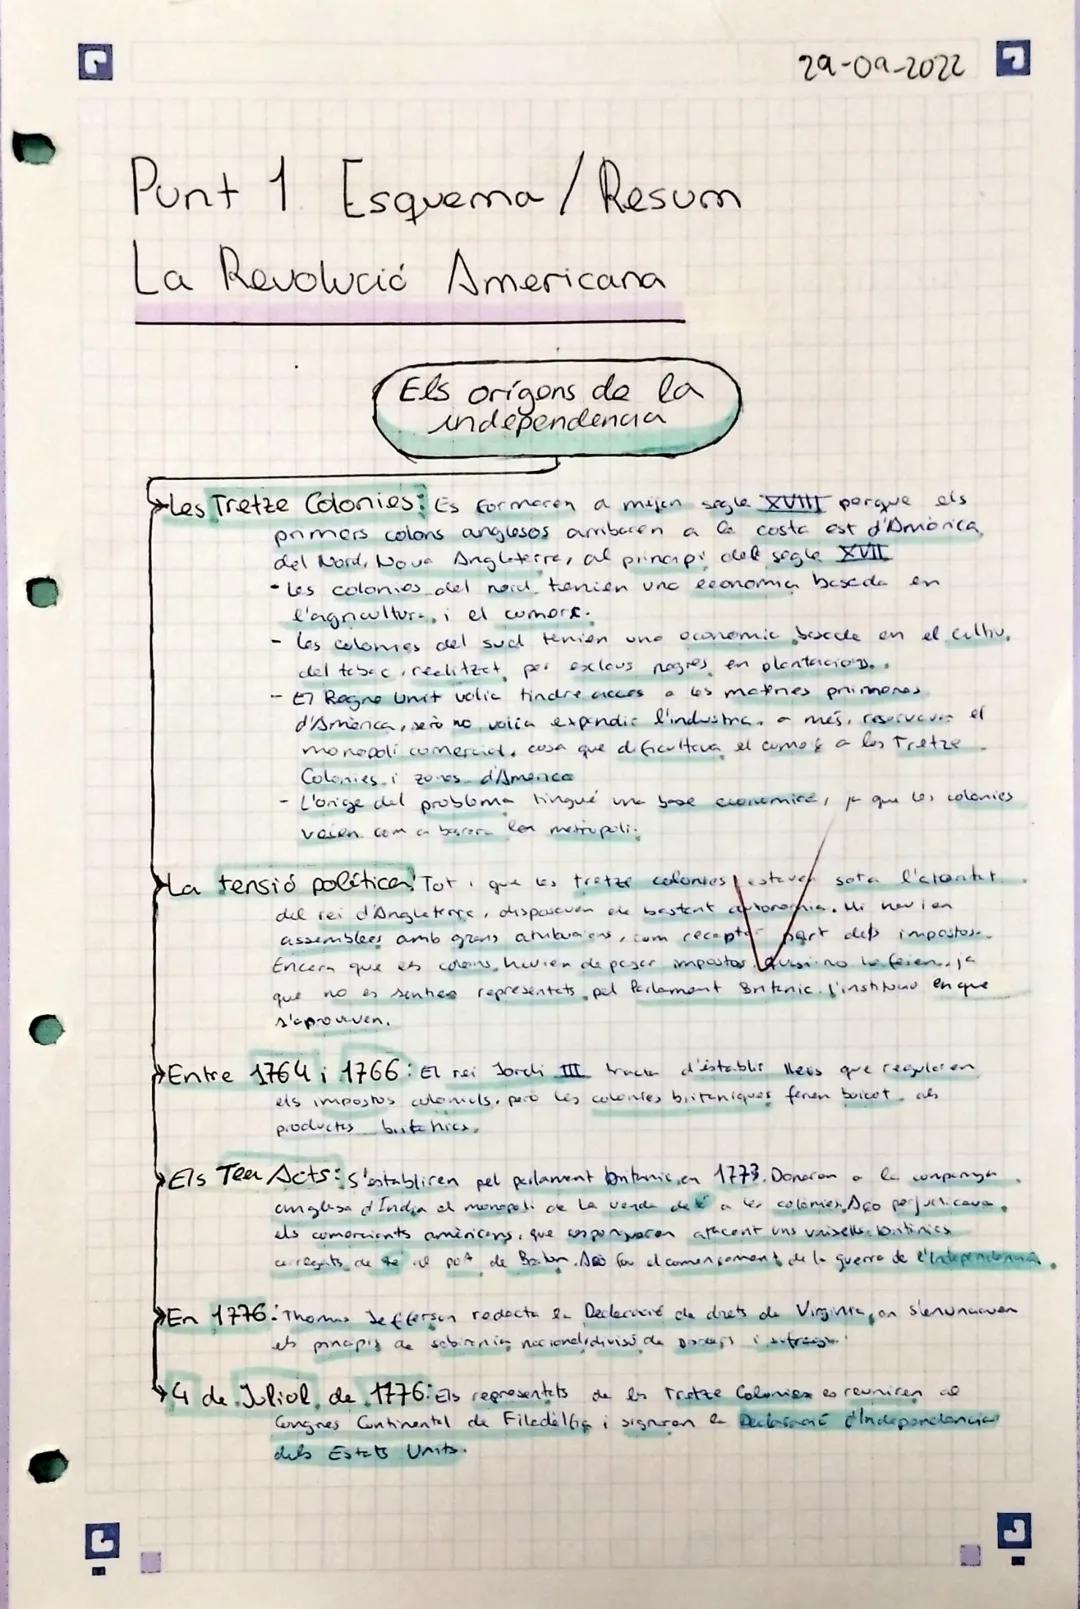 29-09-2022
Punt 1. Esquema / Resum
La Revolució Americana
Els orígens de la
independencia
Les Tretze Colonies: Es formaren a mitjan segle XVIII perque els
primers colons anglesos arribaren a la costa est d'Amèrica
del Nord, Nova Angleterra, al principi del segle XVII
- Les colonies del nord tenien una economia basada en
l'agricultura, i el comerç.
- Les colonies del sud tenien una economia basada en el cultiu
del tabac, realitzat per esclaus negres en plantacions.
- El Regne Unit volia tindre acces a les matèries primeres
d'Amèrica, però no volia expandir l'industria, a més, reservaven el
monopoli comercial, cosa que dificultava el comerç a les Tretze
Colonies i zones d'America
- L'orige del problema tingué una base economica, ja que les colonies
veien com a barrera la metropoli.
La tensió política: Tot i que les tretze colonies estaven sota l'autoritat
del rei d'Angleterra, disposaven de bastant autonomia. Hi havien
assemblees amb grans atribucions, com recaptar part dels impostos.
Encara que els colons havien de pagar impostos quasi no ho feien, ja
que no es sentien representats pel Parlament Britanic, l'institució en que
s'aprovaven.
Entre 1764 i 1766: El rei Jordi III tracta d'establir lleis que regularen
els impostos colonials, però les colonies britaniques feren boicot als
productes britanics.
Els Tea Acts: S'establiren pel parlament britanic en 1773. Donaren a la companya
anglesa d'India el monopoli de la venda de té a les colonies. Açò perjudicava
els comerciants americans, que respongueren atacant uns vaixells britanics
carregats de té al port de Boston. Açò fou el començament de la guerra de l'Independencia.
En 1776: Thomas Jefferson redacta la Declaració de drets de Virginia, on s'enunciaven
els principis de sobirania nacional, divisió de poders i sufragi.
4 de Juliol de 1776: Els representats de les Tretze Colonies es reuniren al
Congres Continental de Filadelfia i signaren la Declaració d'Independencia
dels Estats Units.